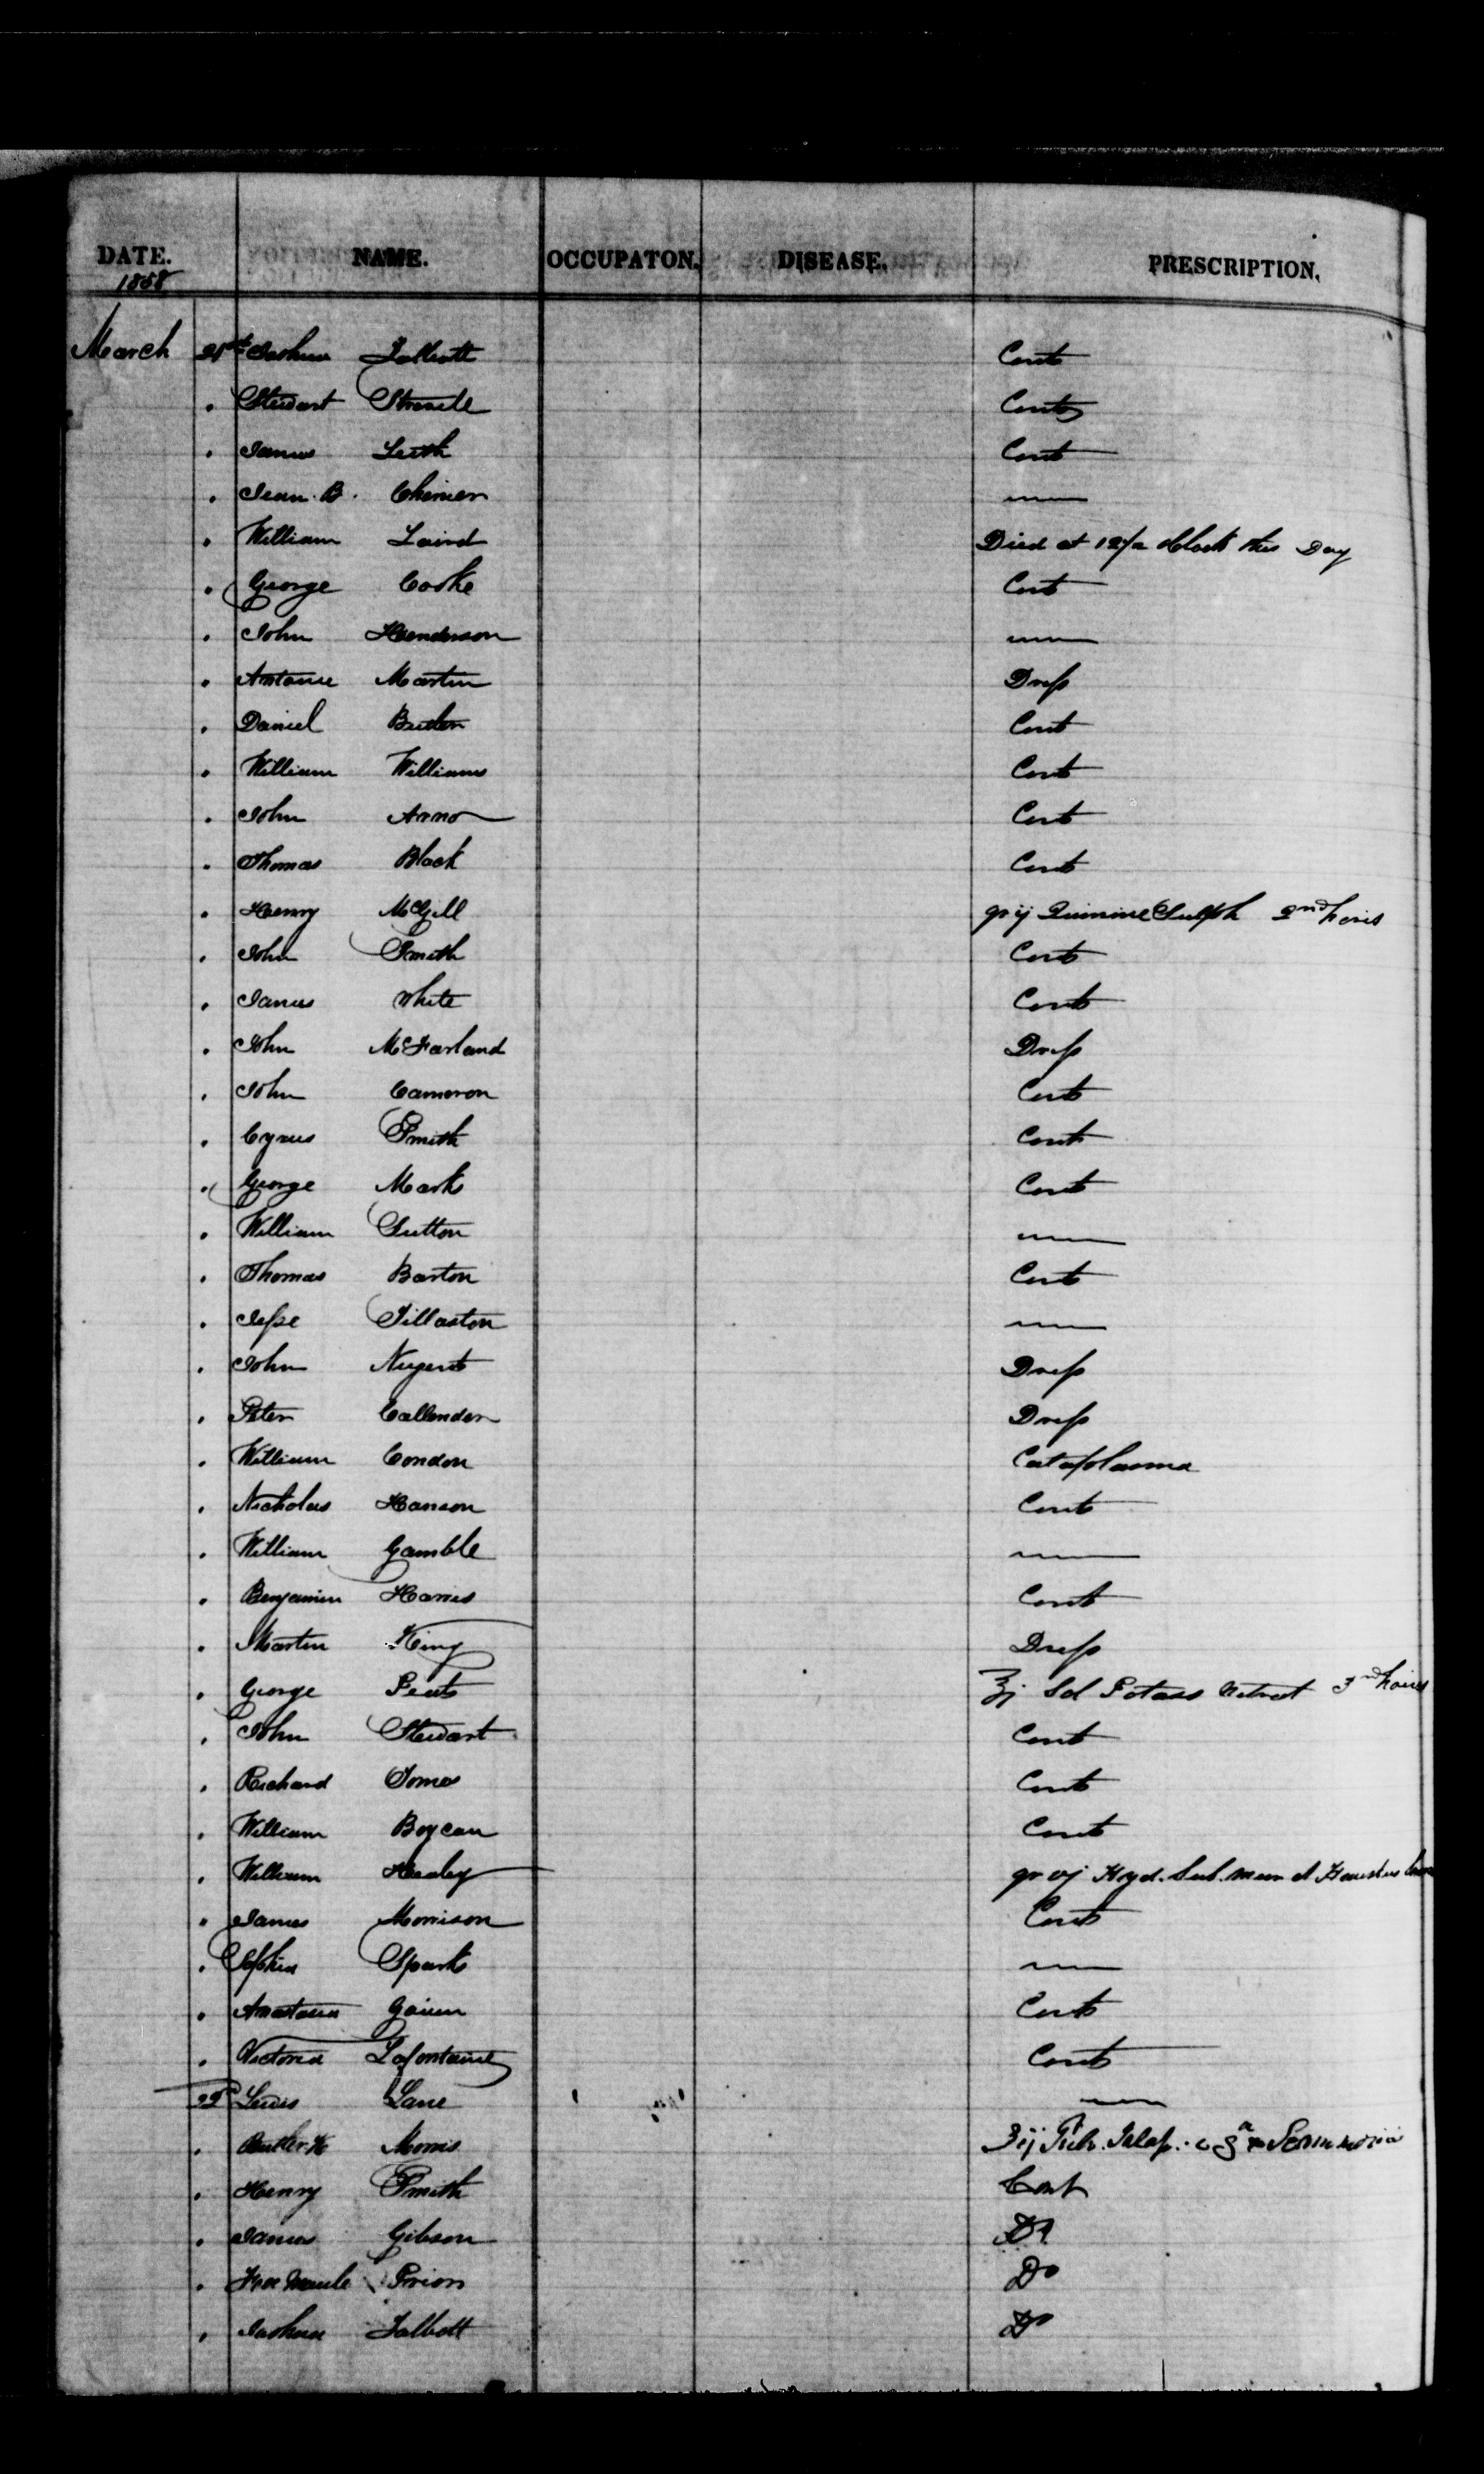 DATE. NAME. OCCUPATON. DISEASE. PRESCRIPTION.
1858
March 21st Joshua Talbott Cont
" Stewart Cont
" James Leith Cont
" Jean. B. Chenier
" William Laird Died at 12½ oClock this Day
" George Cooke Cont
" John Henderson
" Antoine Martin Dress
" Daniel Cont
" William Williams Cont
" John Anno Cont
" Thomas Black Cont
" Henry McGill gr ij Quinine Sulph 2nd horis
" John Smith Cont
" James White Cont
" John McFarland Dress
" John Cameron Cont
" Cyrus Smith Cont
" George Marks Cont
" William Sutton
" Thomas Barton Cont
" Jesse Tillaston
" John Nugent Dress
" Peter Callender Dress
" William Condon Cataplasma
" Nicholas Hanson Cont
" William Gamble
" Benjamin Harris Cont
" Martin King Dress
" George ʒj Sol Potass 3rd horis
" John Stewart Cont
" Richard Jones Cont
" William Cont
" William Healey gr vj Hyd. Sub.
" James Morrison Cont
" Sophia Sparks
" Anastasia Cont
" Victoria Lafontaine Cont
22d Lewis Lane
" Butler. H Morris ʒij Pulv. Jalap.
" Henry Smith Cont
" James Gibson Do
" Prior Do
" Joshua Talbott Do